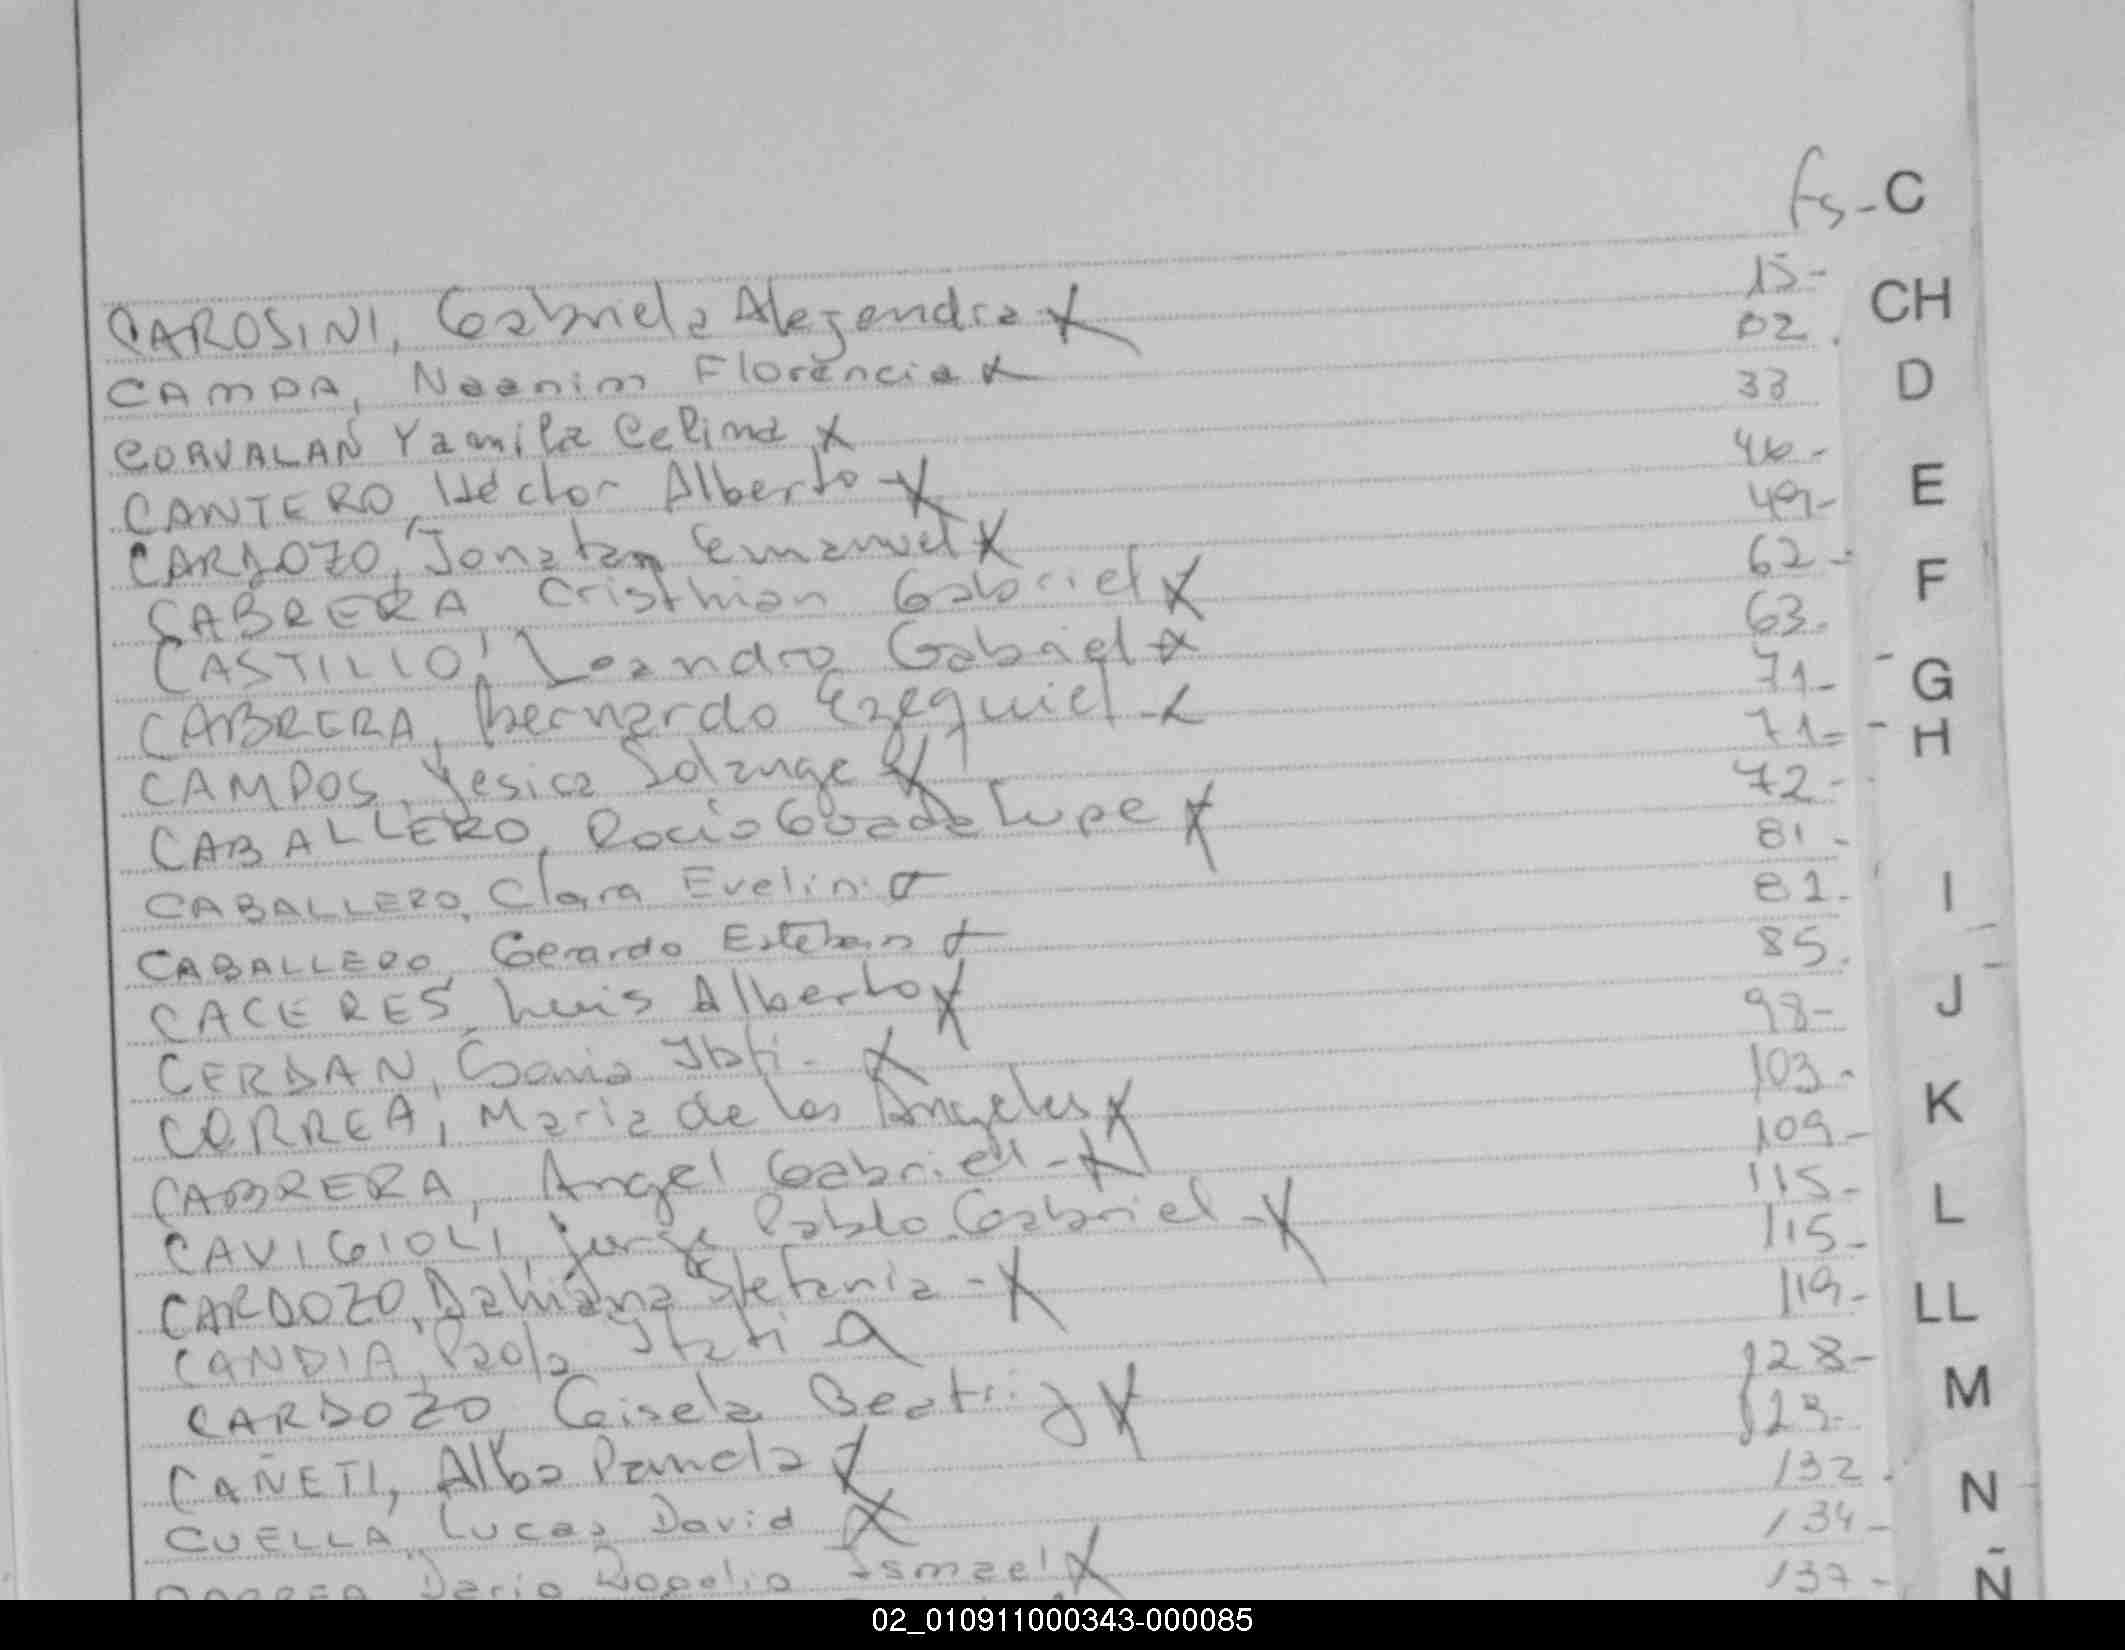 Fs- C
CAROSINI, Gabriela Alejandra X 15-
CAMPA, Naanim Florencia X 02. CH
CORVALAN Yamila Celina X 33 D
CANTERO, Héctor Alberto -X 46-
CARDOZO, Jonatan Emanuel X 49- E
CABRERA Cristhian Gabriel X 62-
CASTILLO, Leandro Gabriel X 63- F
CABRERA, Bernardo Ezequiel -X 71- G
CAMPOS, Yesica Solange X 71= H
CABALLERO, Rocio Guadalupe X 72-
CABALLERO, Clara Evelin 81-
CABALLERO, Gerardo Esteban 81- I
CACERES, Luis Alberto X 85.
CERDAN, Sonia Itati- X 98- J
CORREA, Maria de los Angeles X 103-
CABRERA, Angel Gabriel -X 109- K
CAVIGIOLI, Jorge Pablo Gabriel -X 115-
CARDOZO, Dahiana Stefania -X 115- L
CANDIA, Paola Itati 119- LL
CARDOZO Gisela Beatriz X 128-
CAÑETI, Alba Pamela X M
CUELLA, Lucas David X 132. N
Dario Ismael X 134-
137- Ñ
02_010911000343-000085